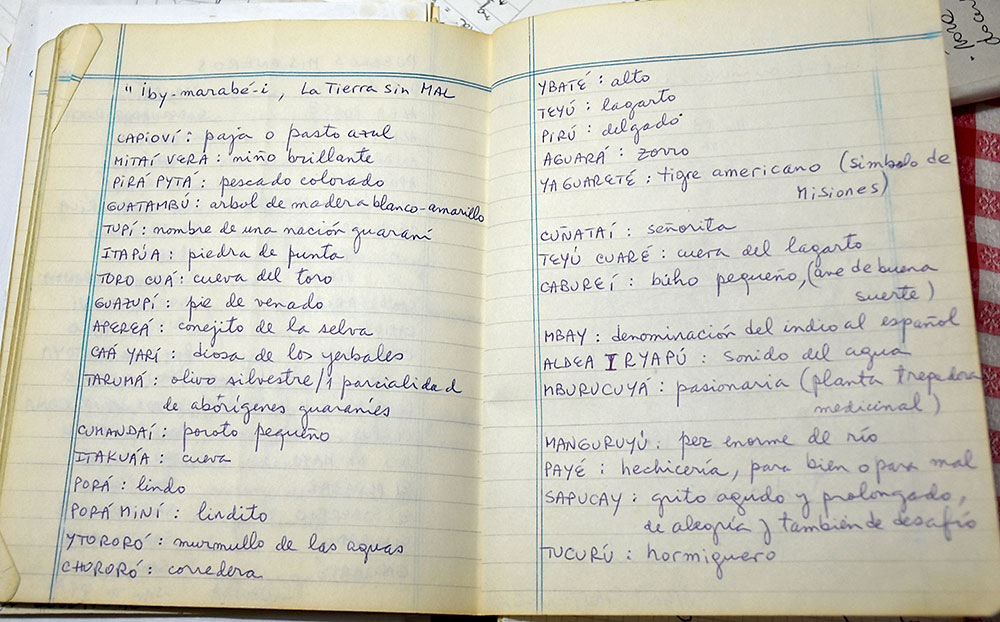 " iby-marabé-i, La Tierra sin MAL
CAPIOVÍ: paja o pasto azul
MITAÍ VERA: niño brillante
PIRÁ PYTÁ: pescado colorado
GUATAMBÚ: arbol de madera blanco-amarillo
TUPÍ: nombre de una nación guaraní
ITAPÚA: piedra de punta
TORO CUÁ: cueva del toro
GUAZUPÍ: pie de venado
APEREÁ: conejito de la selva
CAÁ YARÍ: diosa de los yerbales
TARUMÁ: olivo silvestre/1 parcialidad
de aborígenes guaraníes
CUMANDAÍ: poroto pequeño
ITAKUÁA: cueva
PORÁ: lindo
PORÁ MINÍ: lindito
YTORORÓ: murmullo de las aguas
CHORORÓ: corredera
YBATÉ: alto
TEYÚ: lagarto
PIRÚ: delgado
AGUARÁ: zorro
YAGUARETÉ: tigre americano (símbolo de
Misiones)
CUÑATAÍ: señorita
TEYÚ CUARÉ: cueva del lagarto
CABUREÍ: búho pequeño, (ave de buena
suerte)
MBAY: denominación del indio al español
ALDEA IRYAPÚ: sonido del agua
MBURUCUYÁ: pasionaria (planta trepadora
medicinal)
MANGURUYÚ: pez enorme de río
PAYÉ: hechicería, para bien o para mal
SAPUCAY: grito agudo y prolongado,
de alegría y también de desafío
TUCURÚ: hormiguero